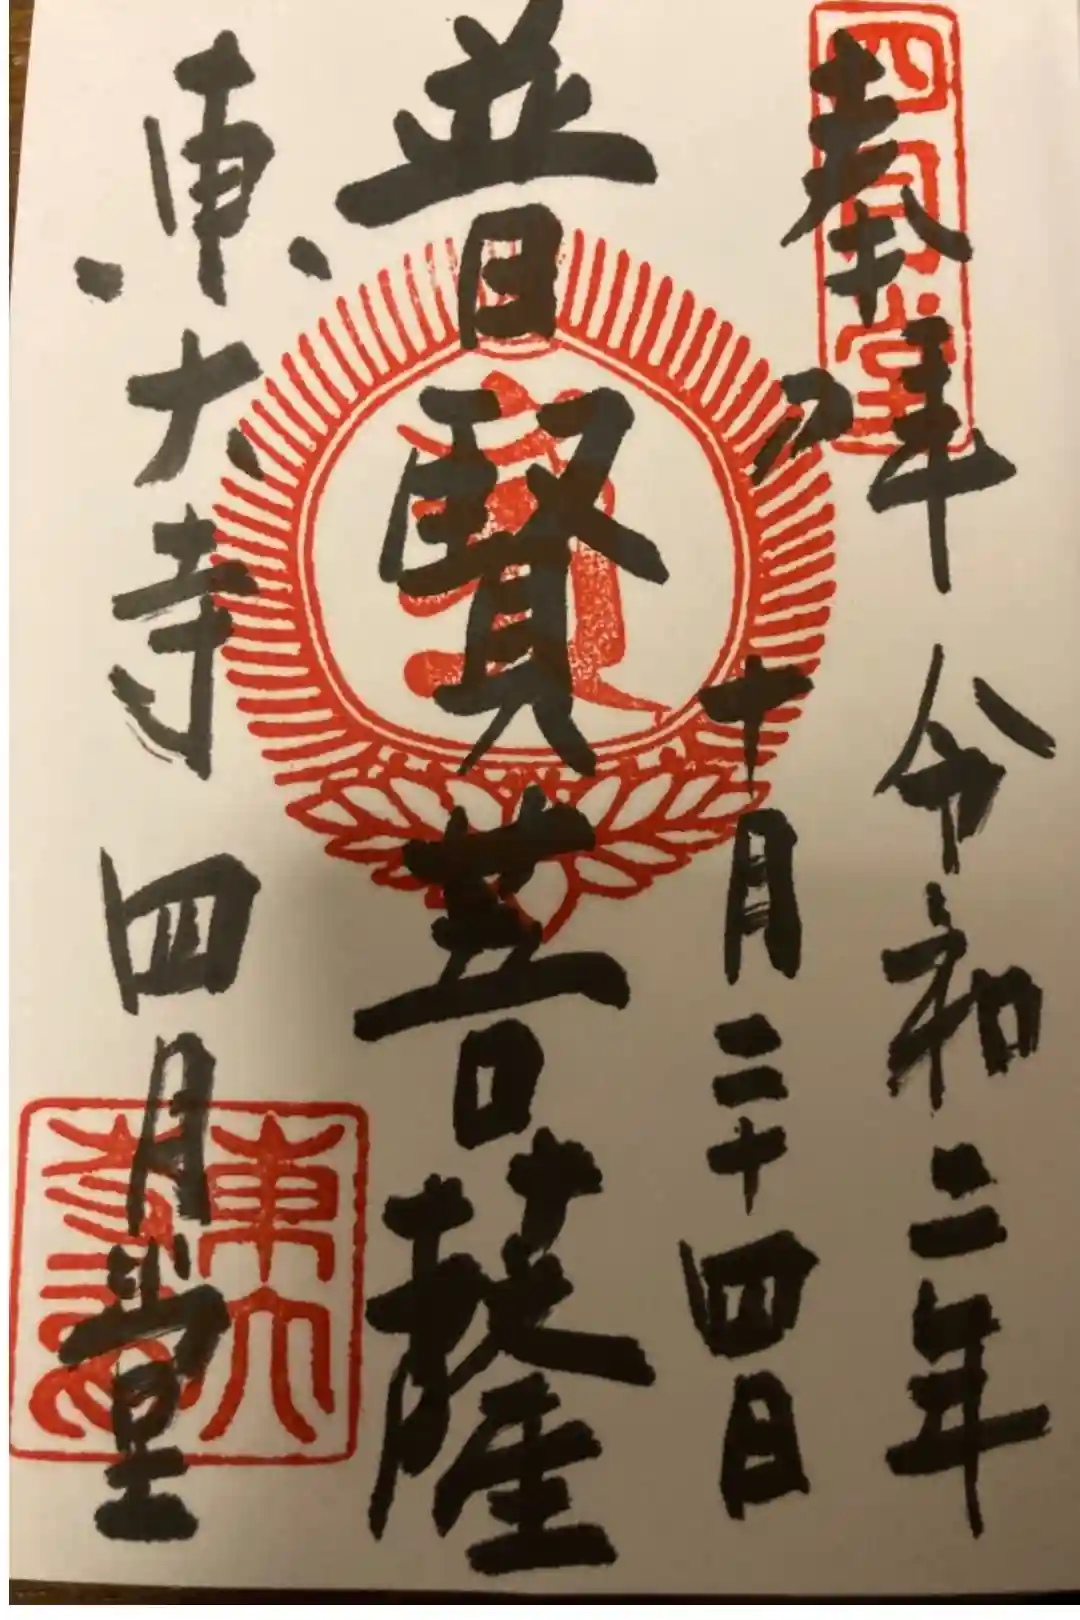 四月堂
奉拝 令和二年
十月二十四日
普賢菩薩
東大寺 四月堂
東大